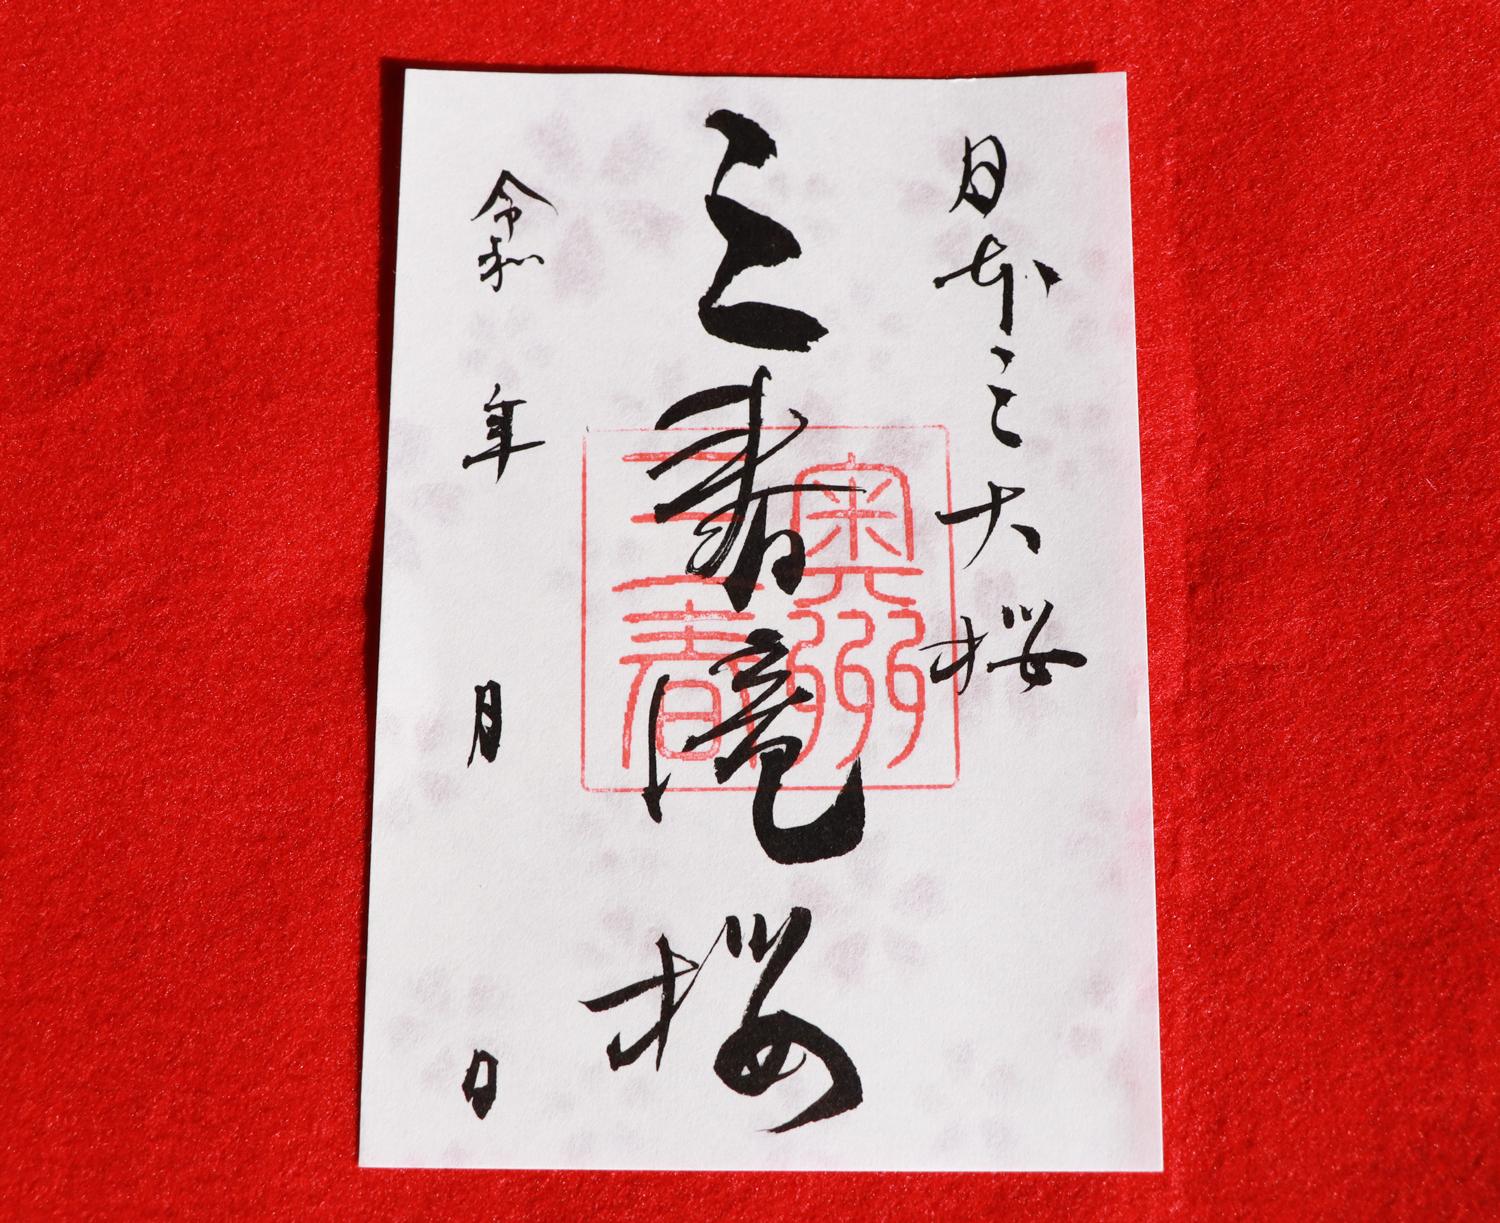 日本三大桜
三春滝桜
奥州
三春
令和 年 月 日